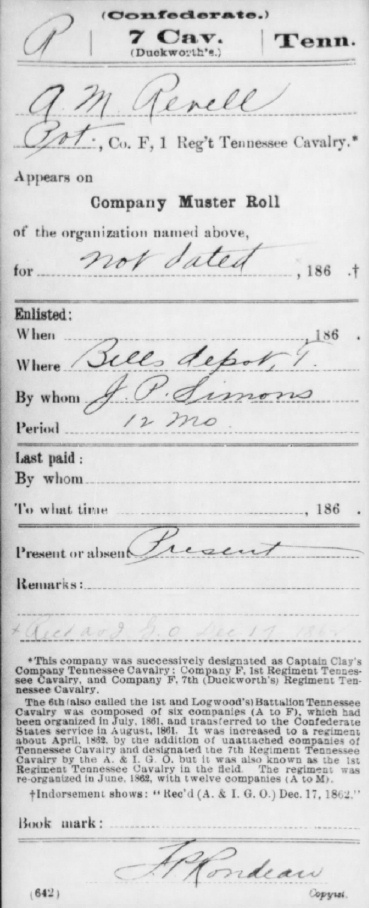 (Confederate.)
R | 7 Cav. | Tenn.
(Duckworth's.)
A M Revell
Pvt., Co. F, 1 Reg't Tennessee Cavalry.*
Appears on
Company Muster Roll
of the organization named above,
for not dated, 186 .†
Enlisted:
When , 186 .
Where Bells depot, T.
By whom J. P. Simons
Period 12 mo
Last paid:
By whom
To what time , 186 .
Present or absent Present
Remarks:
Dec 17 1862
*This company was successively designated as Captain Clay's
Company Tennessee Cavalry; Company F, 1st Regiment Tennes-
see Cavalry, and Company F, 7th (Duckworth's) Regiment Ten-
nessee Cavalry.
The 6th (also called the 1st and Logwood's) Battalion Tennessee
Cavalry was composed of six companies (A to F), which had
been organized in July, 1861, and transferred to the Confederate
States service in August, 1861. It was increased to a regiment
about April, 1862, by the addition of unattached companies of
Tennessee Cavalry and designated the 7th Regiment Tennessee
Cavalry by the A. & I. G. O. but it was also known as the 1st
Regiment Tennessee Cavalry in the field. The regiment was
re-organized in June, 1862, with twelve companies (A to M).
†Indorsement shows: "Rec'd (A. & I. G. O.) Dec. 17, 1862."
Book mark:
F. P. Rondeau
(642) Copyist.